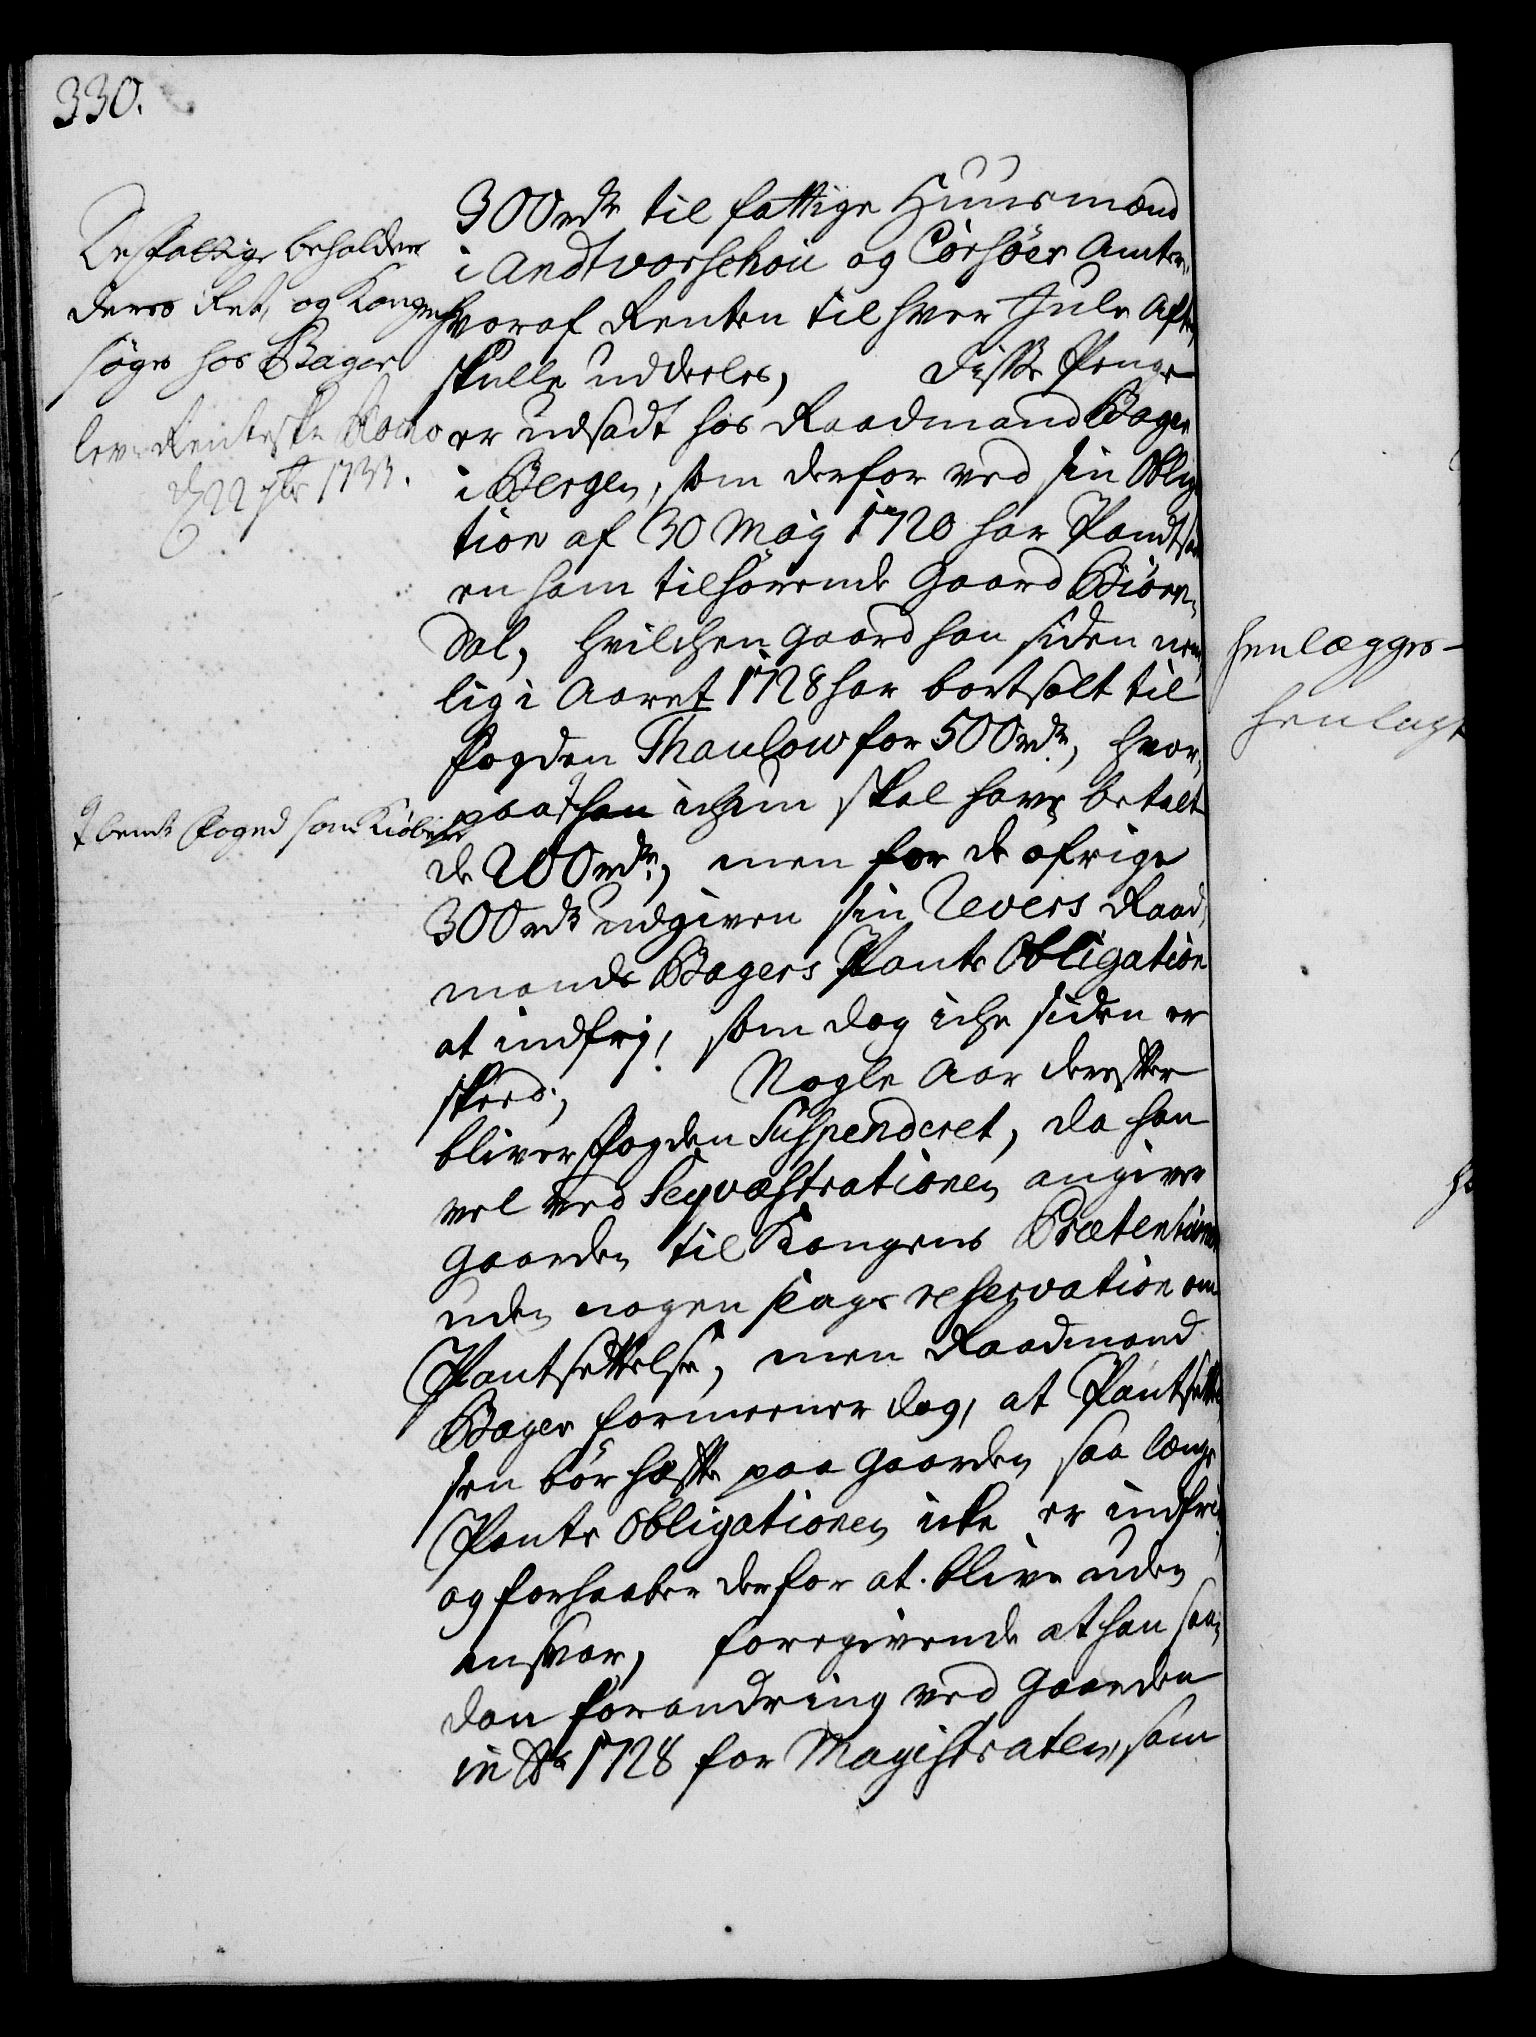 330.
De fattige beholder
deres Ret, og Kongen
søges hos Bager
d 22 7br 1733.
300 rdr til fattige Huusmænd
i Andtvorschou og Corsøer Amter,
hvoraf Renten til hver Jule Aften
skulle uddeeles, disse Penge
er udsadt hos Raadmand Bager
i Bergen, som derfor ved sin Obliga
tion af 30 Maij 1720 har Pandtsadt
en ham tilhørende Gaard Biørn,
dal, hvilchen Gaard han siden nem,
lig i Aaret 1728 har bortsolt til
Fogden Thaulow for 500 rdr, hvor,
paa han icham skal have betalt
bemte Foged som Kiøber
de 200 rdr, men for de øfrige
300 rdr udgiven sin Revers Raad,
mands Bagers Pante Obligation
at indfrj, som dog iche siden er
skeed, Nogle Aar derefter
bliver Fogden Suspenderet, da han
vel ved Seqvæstrationen angiver
Gaarden til Kongens Prætention
uden nogen slags reservation om
Pantsettelse, men Raadmand
Bager formeener dog, at Pantsettel
sen bør hæfte paa Gaarden saa længe
Pante Obligationen icke er indfriet,
og forhaaber derfor at blive uden
ansvar, foregivende at han saa,
dan forandring ved Gaarden
in Ao 1728 for Magistraten, som
henlægges
henlagt